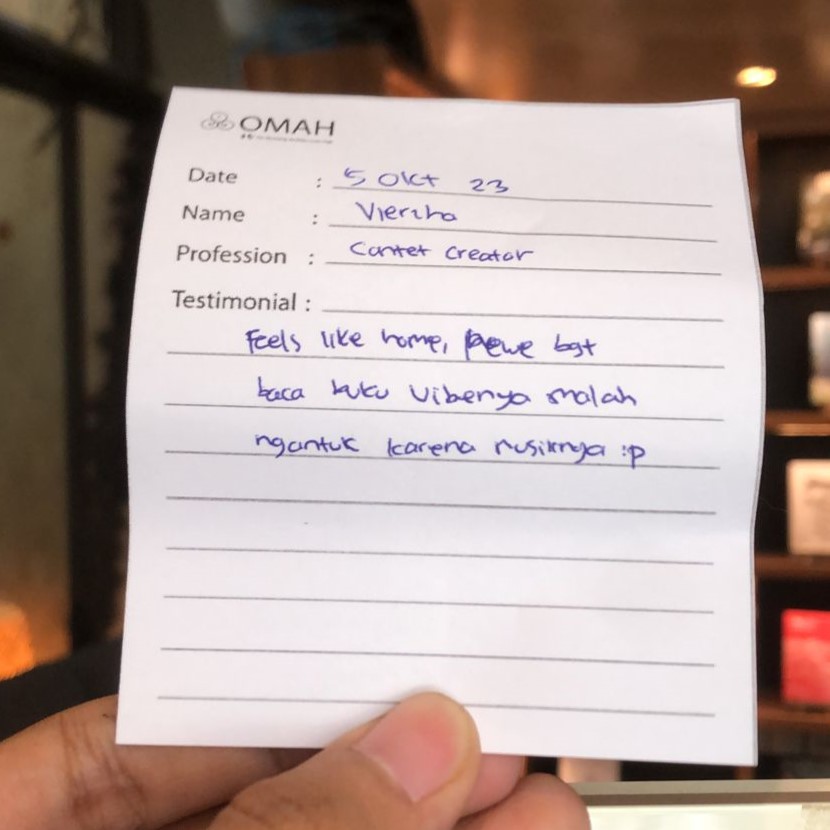 OMAH
Date : 5 Okt 23
Name : Vierzha
Profession : Contet Creator
Testimonial :
Feels like home, pewe bgt
baca buku vibenya malah
ngantuk karena musiknya :p